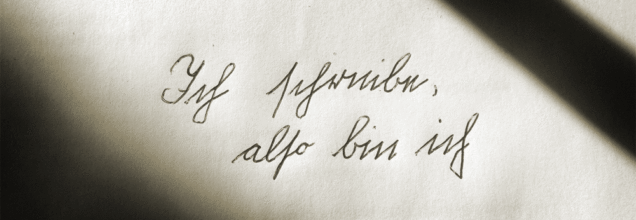 Ich schreibe,
also bin ich